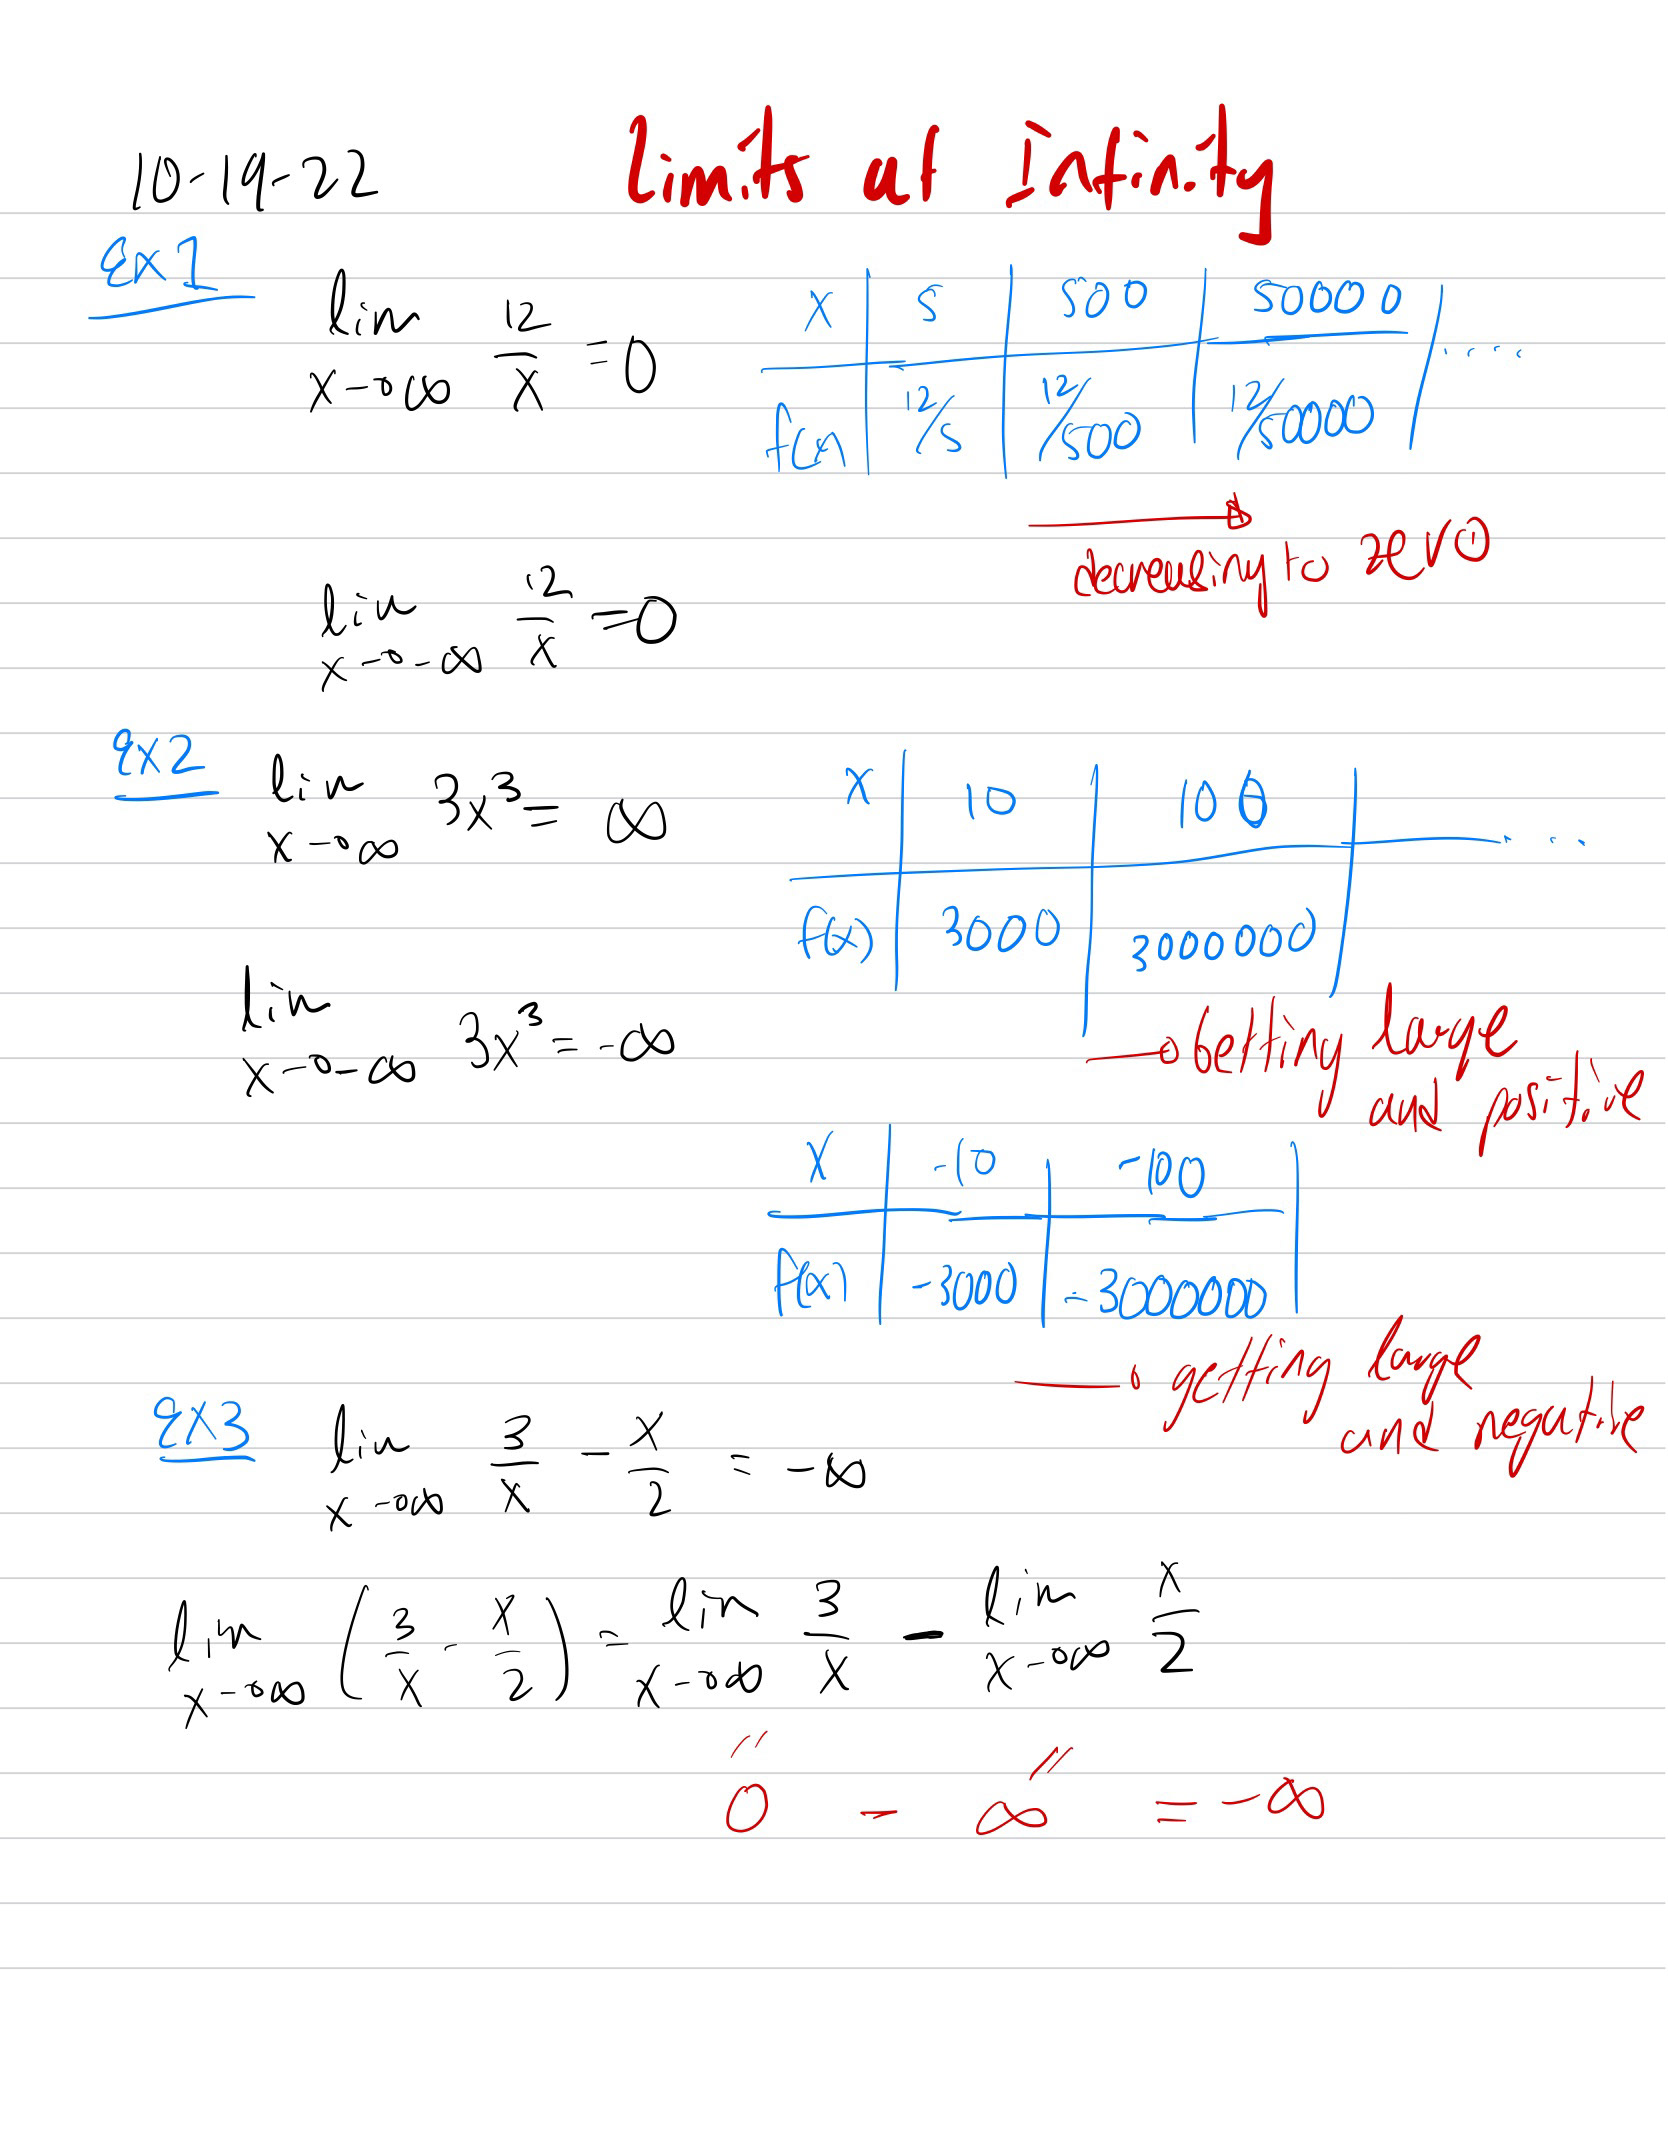 10-19-22 Limits at Infinity
Ex1
lim x→∞ 12/x = 0
x | 5 | 500 | 50000 | ....
f(x) | 12/5 | 12/500 | 12/50000
decreasing to zero
lim x→-∞ 12/x = 0
Ex2
lim x→∞ 3x³ = ∞
x | 10 | 100 | ...
f(x) | 3000 | 3000000
→ Getting large
and positive
lim x→-∞ 3x³ = -∞
x | -10 | -100
f(x) | -3000 | -3000000
→ getting large
and negative
Ex3
lim x→∞ 3/x - x/2 = -∞
lim x→∞ (3/x - x/2) = lim x→∞ 3/x - lim x→∞ x/2
" "
0 - ∞ = -∞